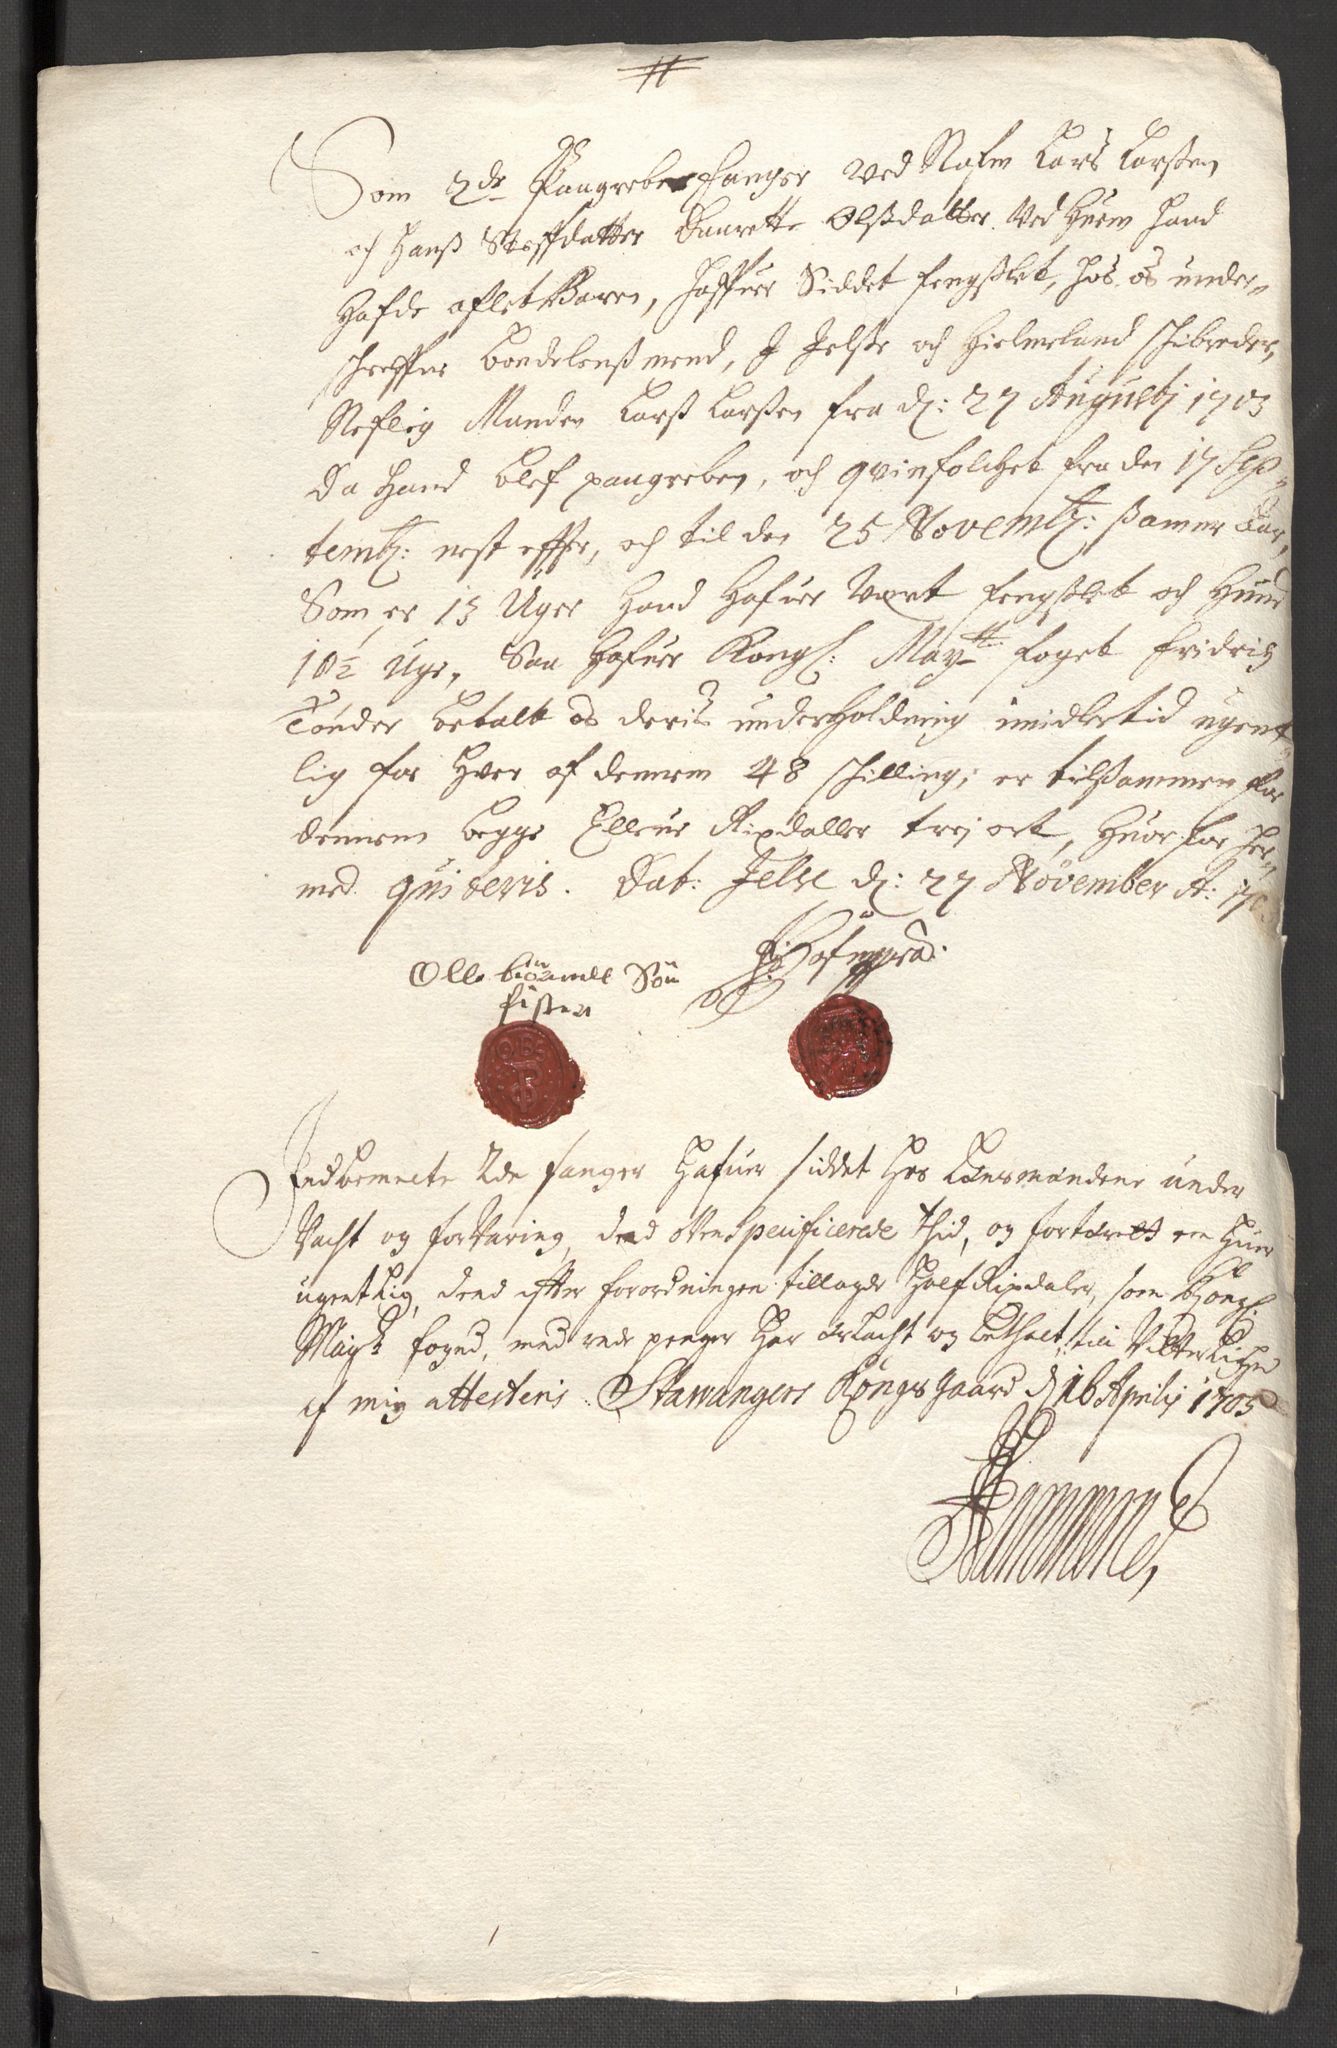 Som 2de Paagrebne fanger ved Nafn Lars Larßen
och Hanß Steffdatter Daarette Olßdatter ved Huem Hand
Hafde aflet Barn, Haffuer Siddet fengßlet, hos os under-
schreffne bondelensmend, J Jelße och Hielmeland schibreder,
Neflig Manden Larß Larßen fra d: 27 Augusti 1703
Da Hand blef paagreben, och qvinfolchet fra den 17 Sep-
temb: nest effter, och til den 25 Novemb: samme Aar,
Som er 13 Uger Hand Hafuer veret fengßlet och Hund
10½ Uge, Saa Hafuer Kongl: Maytt foget Fridrich
Tønder betalt os deris underholdning imidlertid ugent-
lig for Hver af dennem 48 schilling; er tilsammen for
dennem begge Elleve Rixdaller trej ort, Huor for Her-
med quiteris. Dat: Jelse d: 27 November A: 1703
Olle biörnell Sön
fister
Indbemelte 2de fanger Hafuer siddet Hos Lensmandene under
Vacht og forvaring, dend ovenspecificerede Thid, og fortæret en Huer
ugentlig, dend efter forordningen tillagde Half Rixdaler, som Kongl.
Mayts foged, med rede penger Har erlacht og bethalt, till Vitterlighed
af mig attesteris. Stawangers Kongsgaard d 16 Aprilij 1705